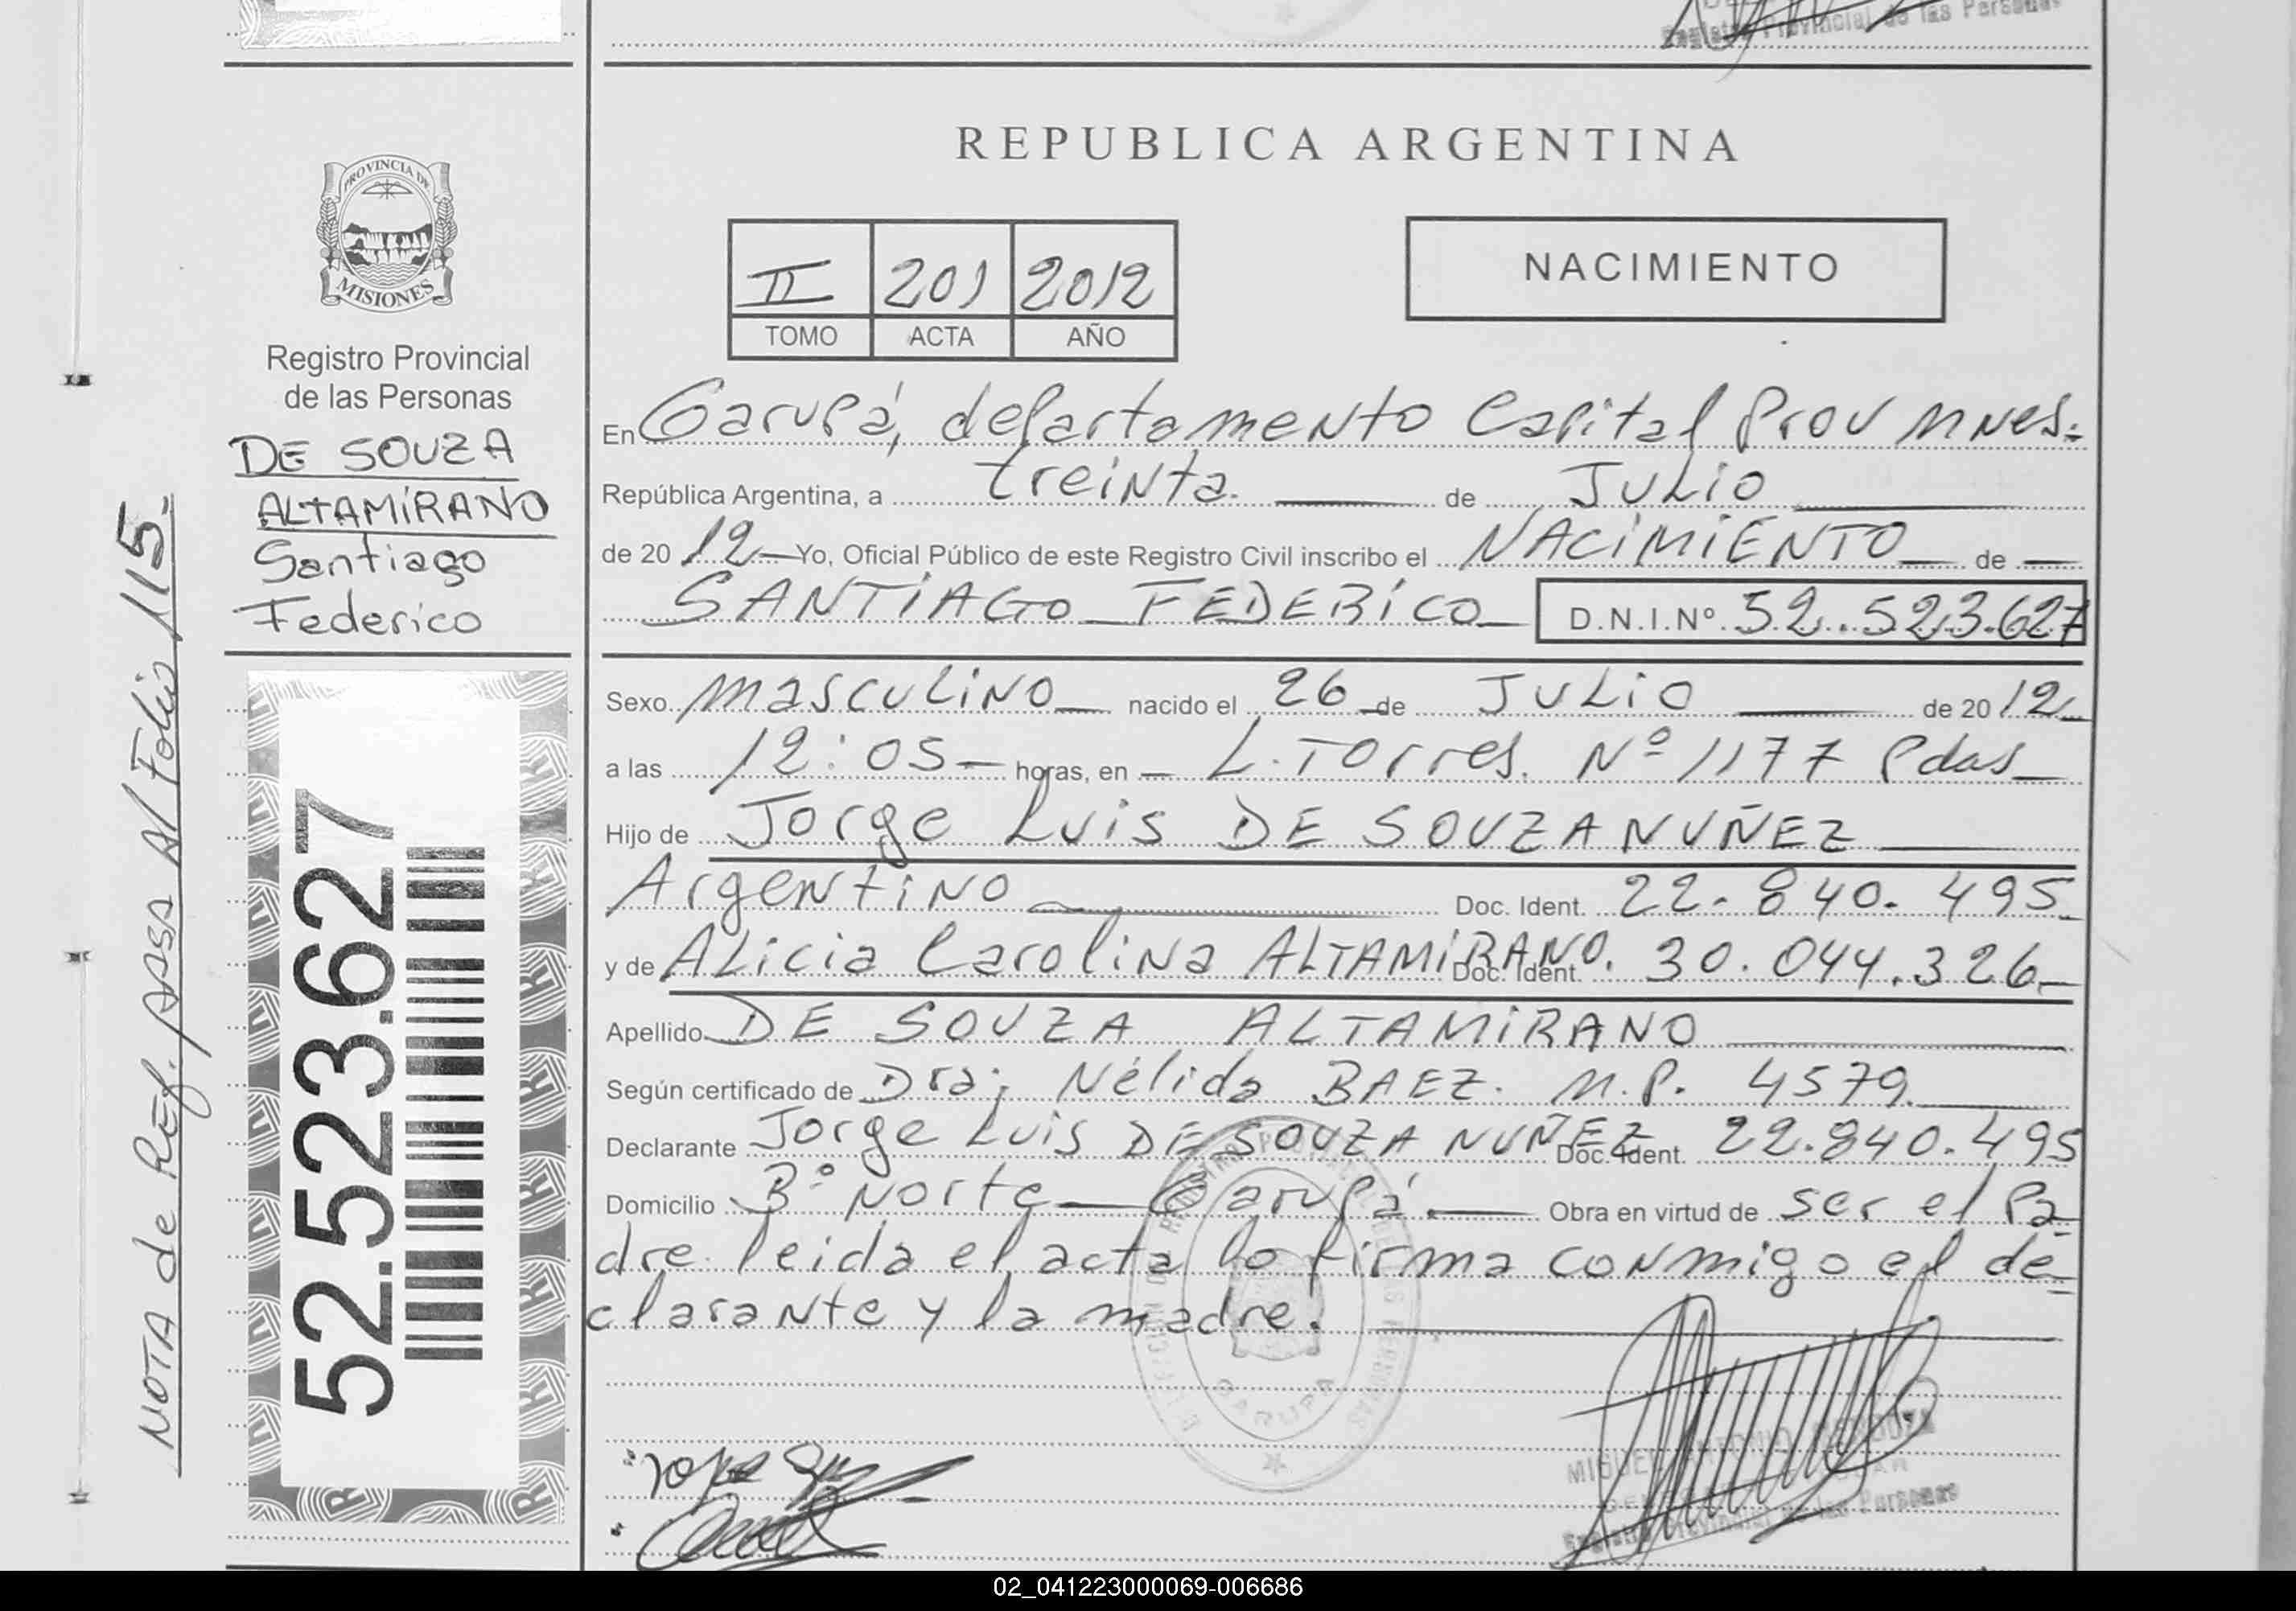 Registro Provincial de las Personas
REPUBLICA ARGENTINA
PROVINCIA DE
MISIONES
II 201 2012
TOMO ACTA AÑO
NACIMIENTO
Registro Provincial
de las Personas
DE SOUZA
ALTAMIRANO
Santiago
Federico
En Garupá, departamento Capital Prov Mnes.
República Argentina, a treinta. de Julio
de 20 12 Yo, Oficial Público de este Registro Civil inscribo el NACIMIENTO de
SANTIAGO FEDERICO D.N.I.Nº. 52.523.627
Sexo masculino nacido el 26 de JULIO de 20 12
a las 12:05 horas, en L. Torres. Nº 1177 Pdas
Hijo de Jorge Luis DE SOUZA NUÑEZ
Argentino Doc. Ident. 22.840.495
y de Alicia Carolina ALTAMIRANO. Doc. Ident. 30.044.326
Apellido DE SOUZA ALTAMIRANO
Según certificado de Dra; Nélida BAEZ. M.P. 4579.
Declarante Jorge Luis DE SOUZA NUÑEZ Doc. Ident. 22.840.495
Domicilio Bº Norte Garupá. Obra en virtud de ser el Pa
dre leida el acta lo firma conmigo el de
clarante y la madre.
52.523.627
NOTA de Ref. pasa Al Folio 115.
GARUPA
Registro Provincial de las Personas
02_041223000069-006686